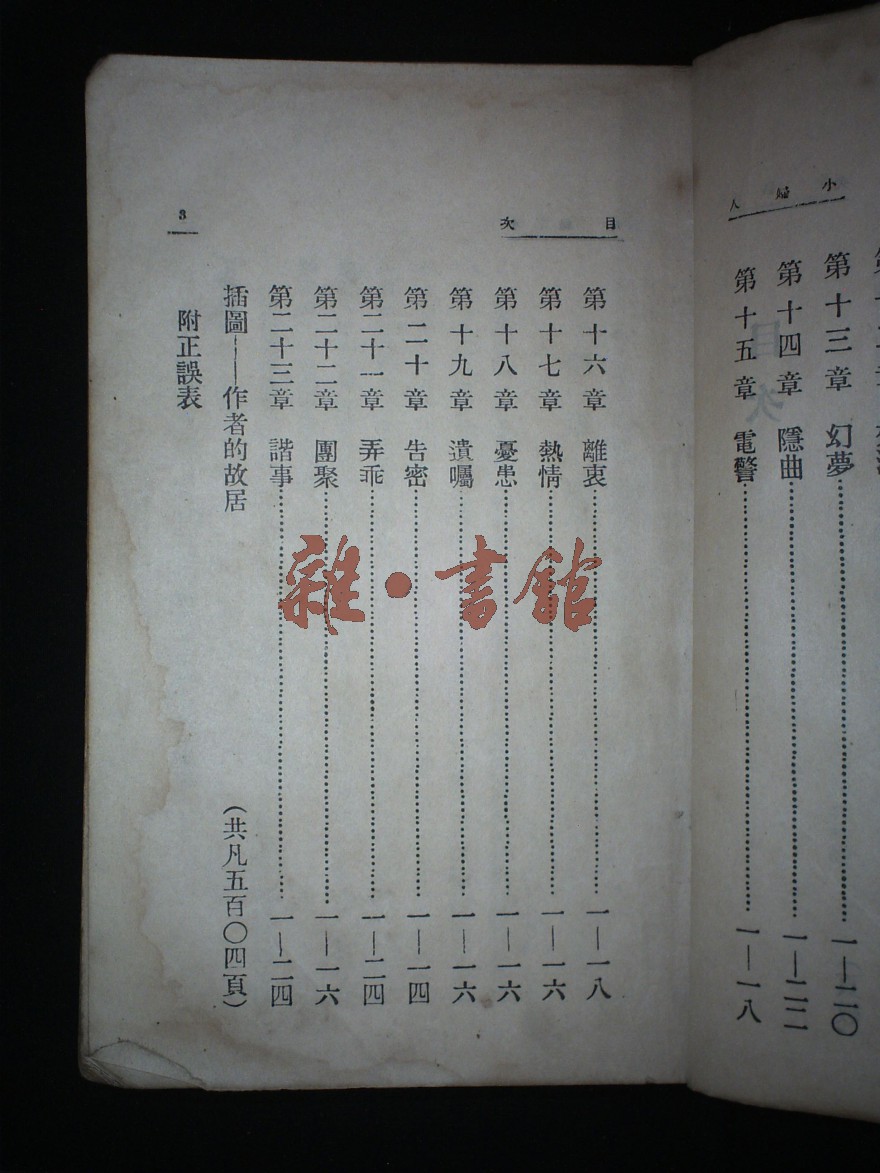 小婦人
第十三章 幻夢……一—二〇
第十四章 隱曲……一—二二
第十五章 電警……一—一八
目次
第十六章 離衷……一—一八
第十七章 熱情……一—一六
第十八章 憂患……一—一六
第十九章 遺囑……一—一六
第二十章 告密……一—一四
第二十一章 弄乖……一—二四
第二十二章 團聚……一—一六
第二十三章 諧事……一—二四
插圖——作者的故居 (共凡五百〇四頁)
附正誤表
3
雜·書館